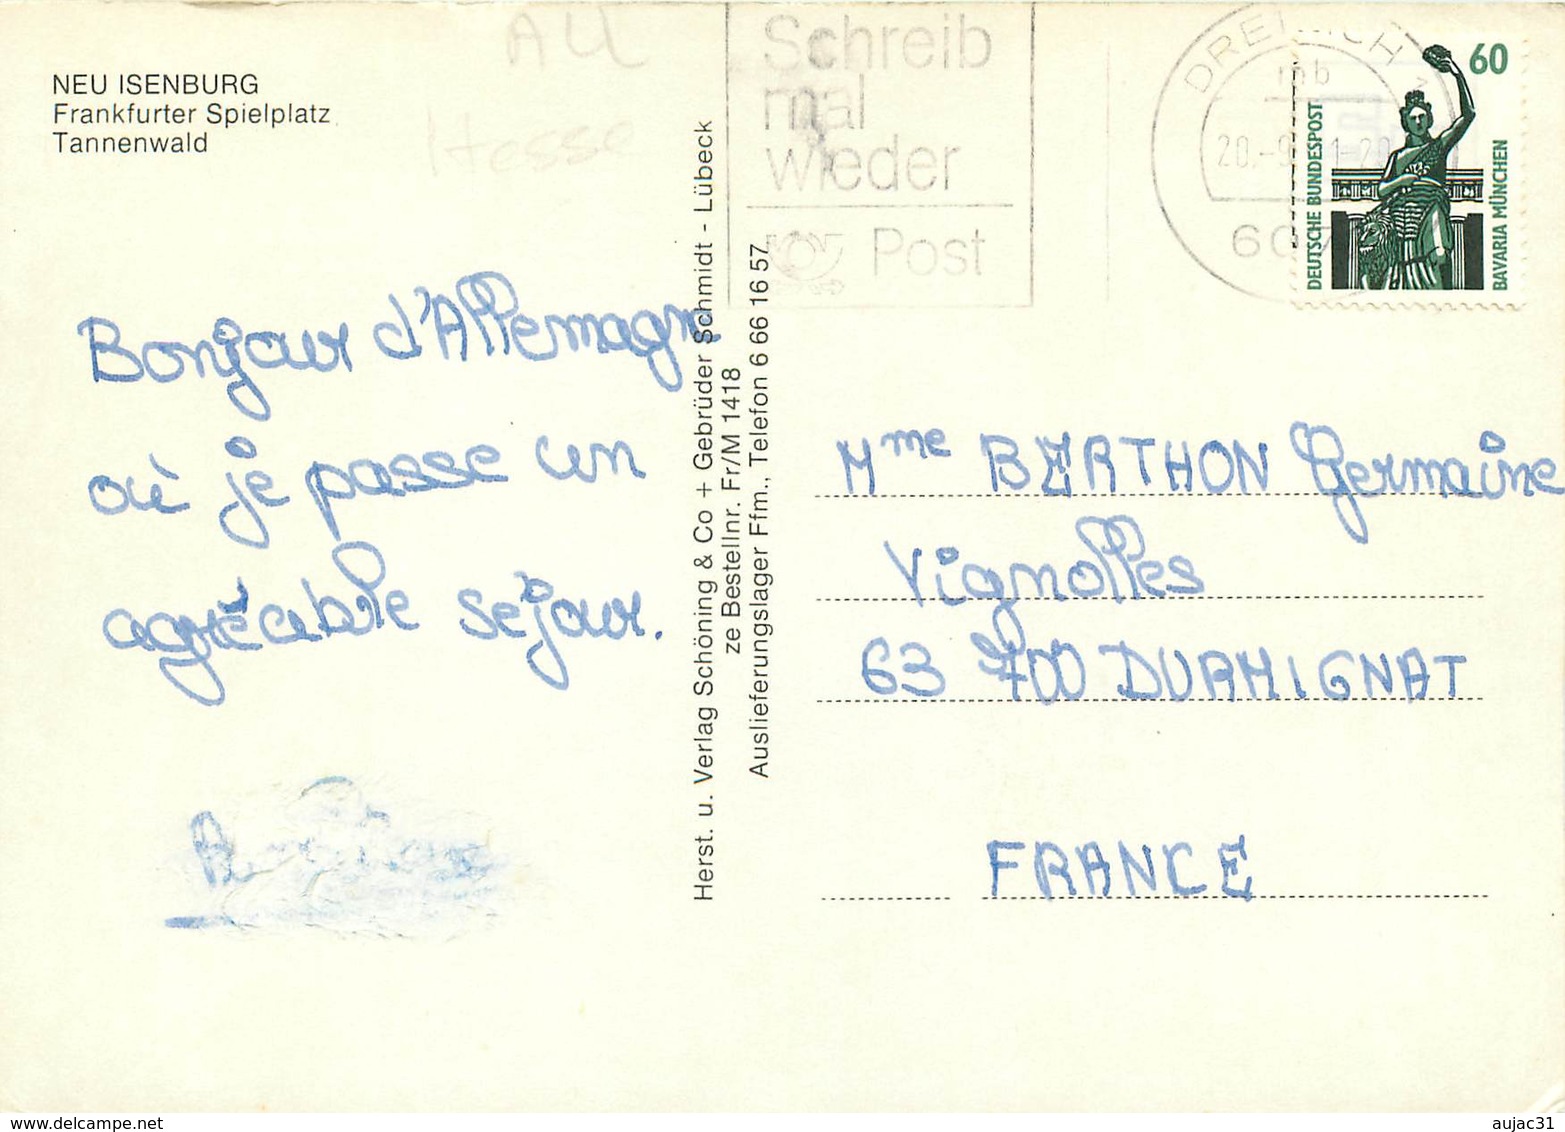 NEU ISENBURG
Frankfurter Spielplatz
Tannenwald
AU
Hesse
Schreib
mal
wieder
Post
DREIEICH
mb
607
60
DEUTSCHE BUNDESPOST
BAVARIA MÜNCHEN
Bonjour d'Allemagne
où je passe un
agréable séjour.
Herst. u. Verlag Schöning & Co + Gebrüder Schmidt - Lübeck
ze Bestellnr. Fr/M 1418
Auslieferungslager Ffm., Telefon 6 66 16 57
Mme BERTHON Germaine
Vignolles
63 700 DURMIGNAT
FRANCE
delcampe.net
aujac31